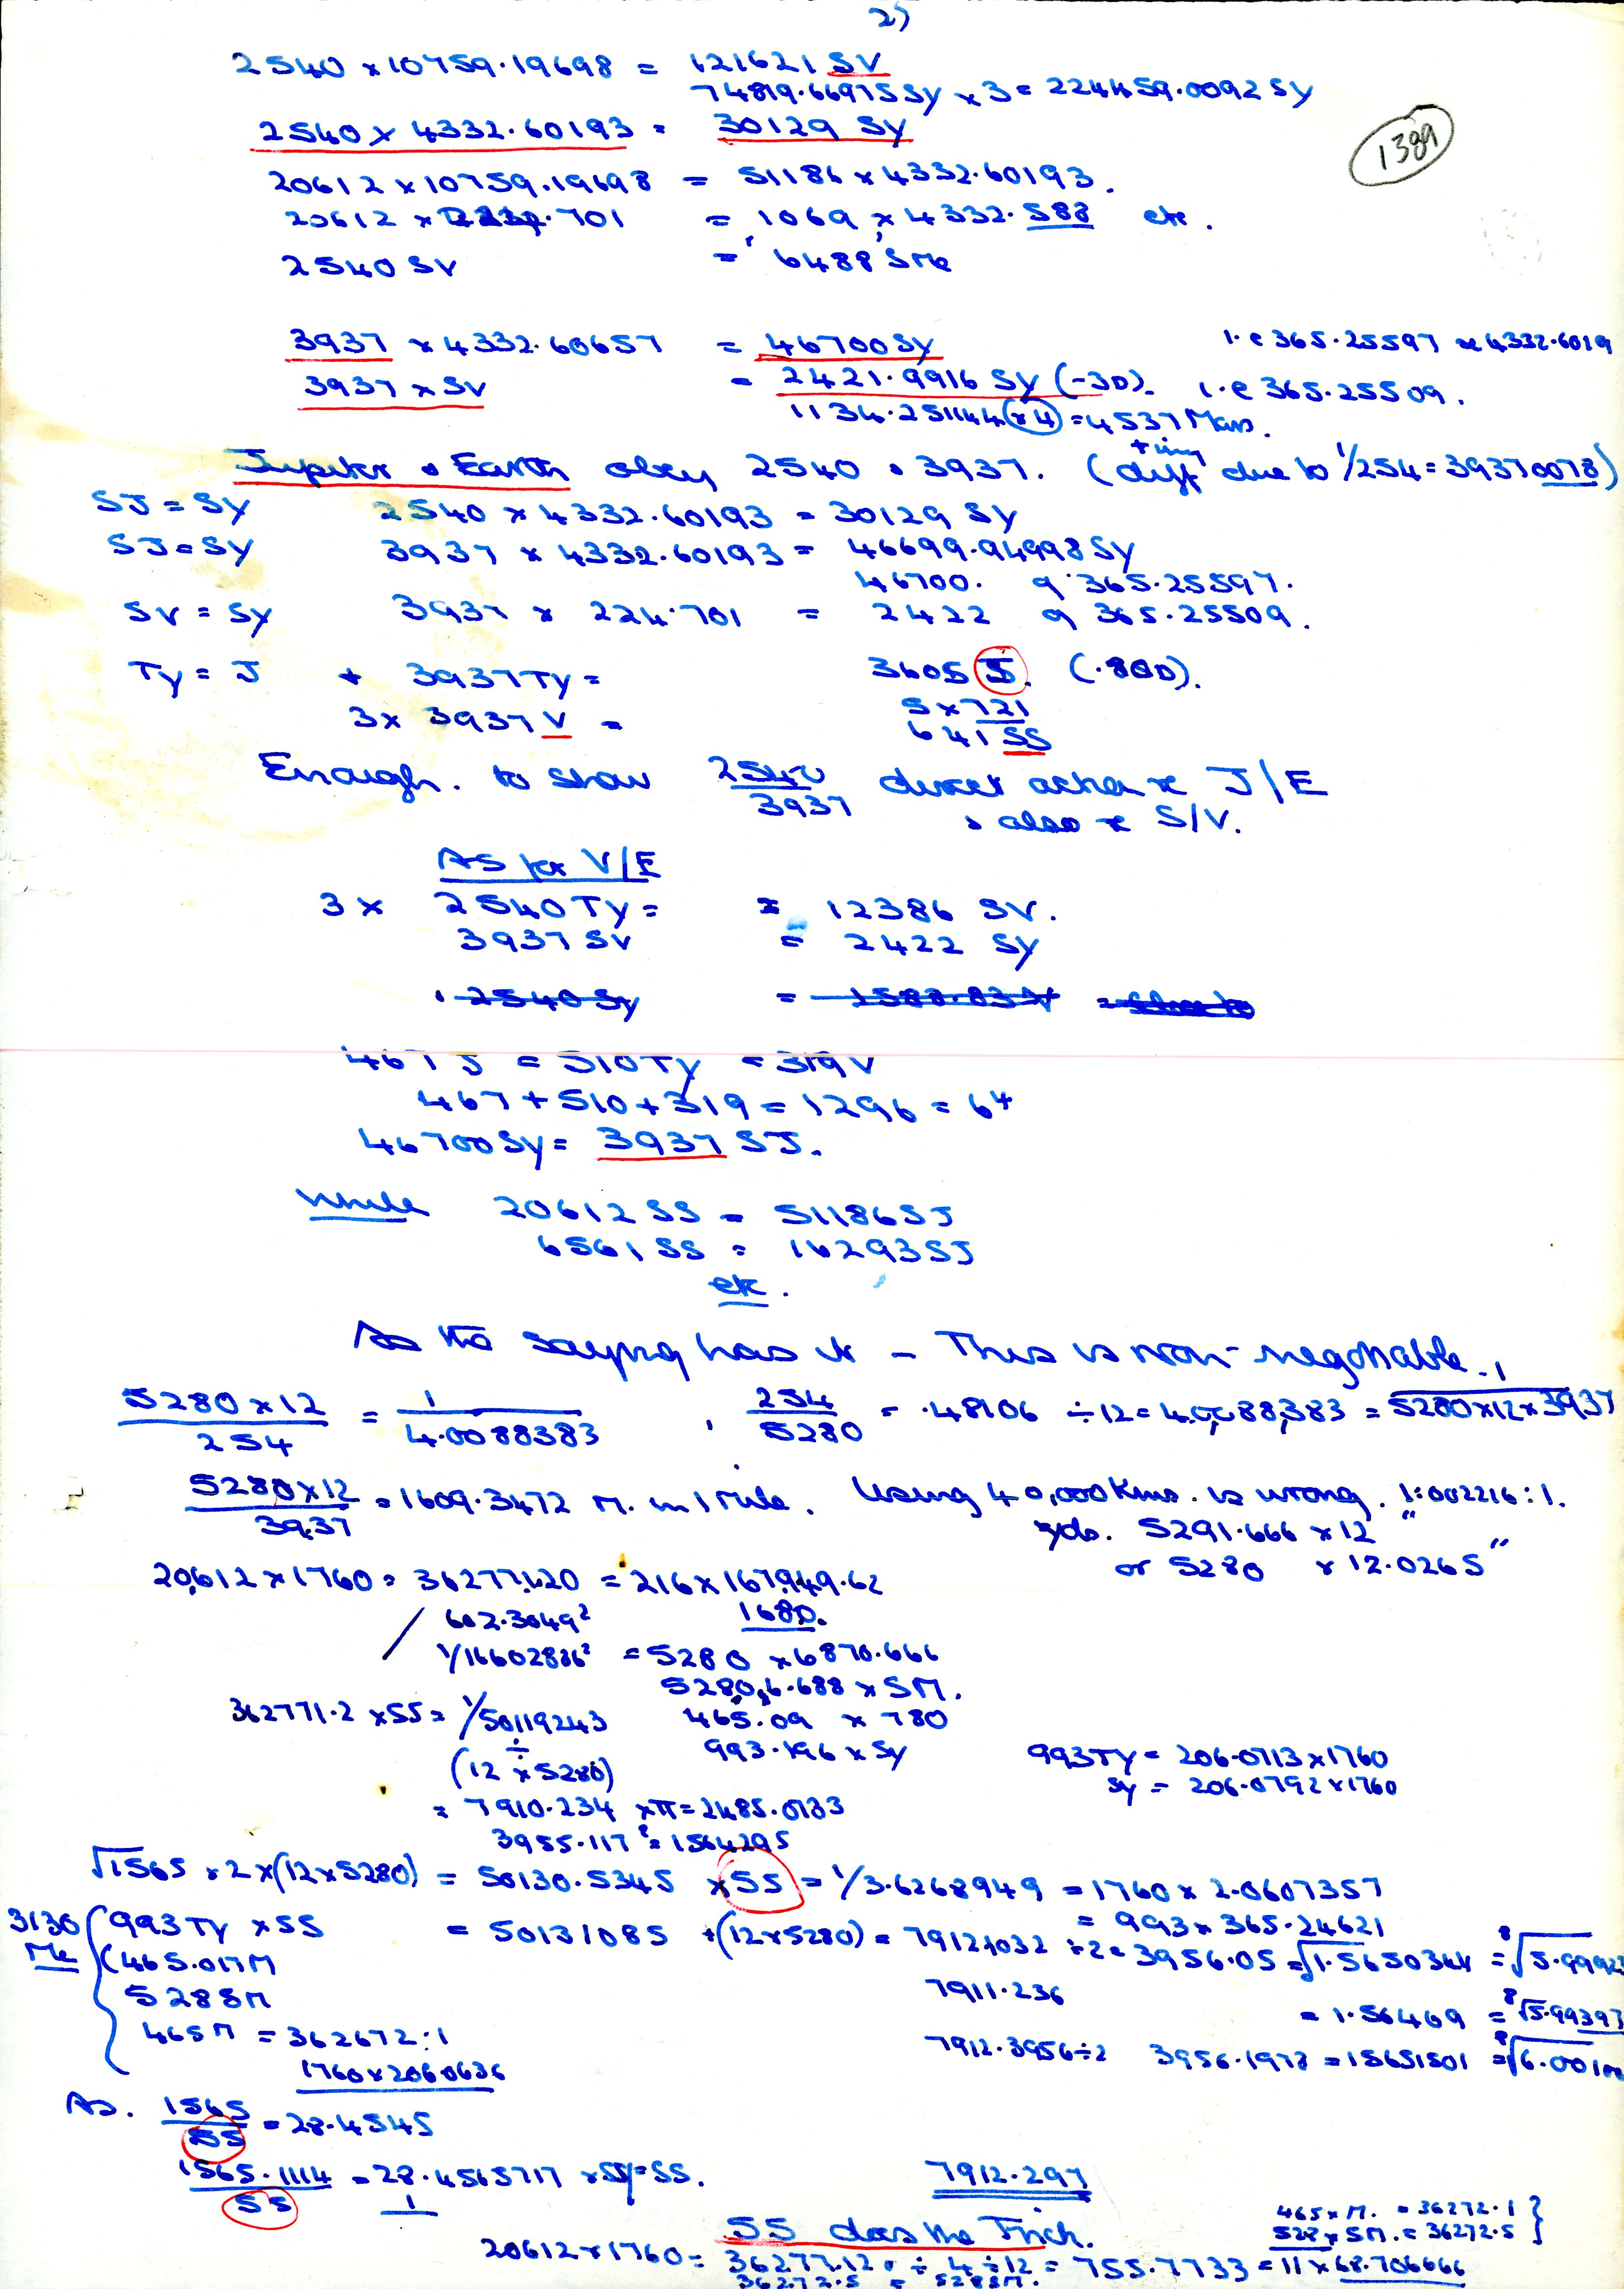 2)
2540 × 10759.19698 = 121621 SV
74819.66975 Sy × 3 = 224459.0092 Sy
1389
2540 × 4332.60193 = 30129 Sy
20612 × 10759.19698 = 51186 × 4332.60193.
20612 × 701 = 1069 × 4332.588 etc.
2540 SV = 6488 SMe
3937 × 4332.60657 = 46700 Sy
i.e 365.25597 × 4332.6019
3937 × SV = 2421.9916 Sy (-3D). i.e 365.25509.
1134.251144 (×4) = 4537 Mars.
Jupiter & Earth obey 2540 & 3937. (+ tiny diff due to 1/254 = 39370078)
SJ = Sy 2540 × 4332.60193 = 30129 Sy
SJ = Sy 3937 × 4332.60193 = 46699.94998 Sy
46700. of 365.25597.
SV = Sy 3937 × 224.701 = 2422 of 365.25509.
Ty = J + 3937 Ty = 3605 J. (.80D).
5 × 721
3 × 3937 V = 641 SS
Enough. to show 2540/3937 direct J/E
& also S/V.
As for V/E
3 × 2540 Ty = = 12386 SV.
3937 SV = 2422 Sy
2540 Sy = 1588.83
467 J = 510 Ty = 319 V
467 + 510 + 319 = 1296 = 6⁴
46700 Sy = 3937 SJ.
While 20612 SS = 51186 SJ
6561 SS = 16293 SJ
etc.
As the saying has it - This is non-negotiable.
5280 × 12 / 254 = 1 / 4.0088383 , 254 / 5280 = .48106 ÷ 12 = 4.0088,383 = 1 / 5280 × 12 × 3937
5280 × 12 / 39.37 = 1609.3472 M. in 1 mile. Using 40,000 Kms. is wrong. 1.002216 : 1.
yds. 5291.666 × 12 "
or 5280 × 12.0265 "
20,612 × 1760 = 36277.120 = 216 × 167,949.62
602.3049² 1680.
1/16602886² = 5280 × 6870.666
5280,6.688 × SM.
362771.2 × SS = 1/50119243 465.09 × 780
÷ 993.196 × Sy
(12 × 5280)
993 Ty = 206.0713 × 1760
Sy = 206.0792 × 1760
= 7910.234 × π = 2485.0733
3955.117² = 1564295
√1565 × 2 × (12 × 5280) = 50130.5345 × SS = 1/3.6268949 = 1760 × 2.0607357
= 993 × 365.24621
3130 Me (993 Ty × SS = 50131085 ÷ (12 × 5280) = 7912.1032 ÷ 2 = 3956.05 = √1.5650344 = ⁸√5.9992
(465.017 M
7911.236
528 SM
= 1.56469 = ⁸√5.99397
465 M = 362672 : 1
7912.3956 ÷ 2 3956.1978 = 15651501 = ⁸√6.001
1760 × 2060636
As. 1565 / SS = 28.4545
1565.1114 / SS = 28.4565717 × Sy = SS.
1
7912.297
SS does the Trick.
465 × M. = 36272.1
528 × SM. = 36272.5
20612 × 1760 = 36277.12 ÷ 4 ÷ 12 = 755.7733 = 11 × 68.706666
36272.5 = 528 SM.